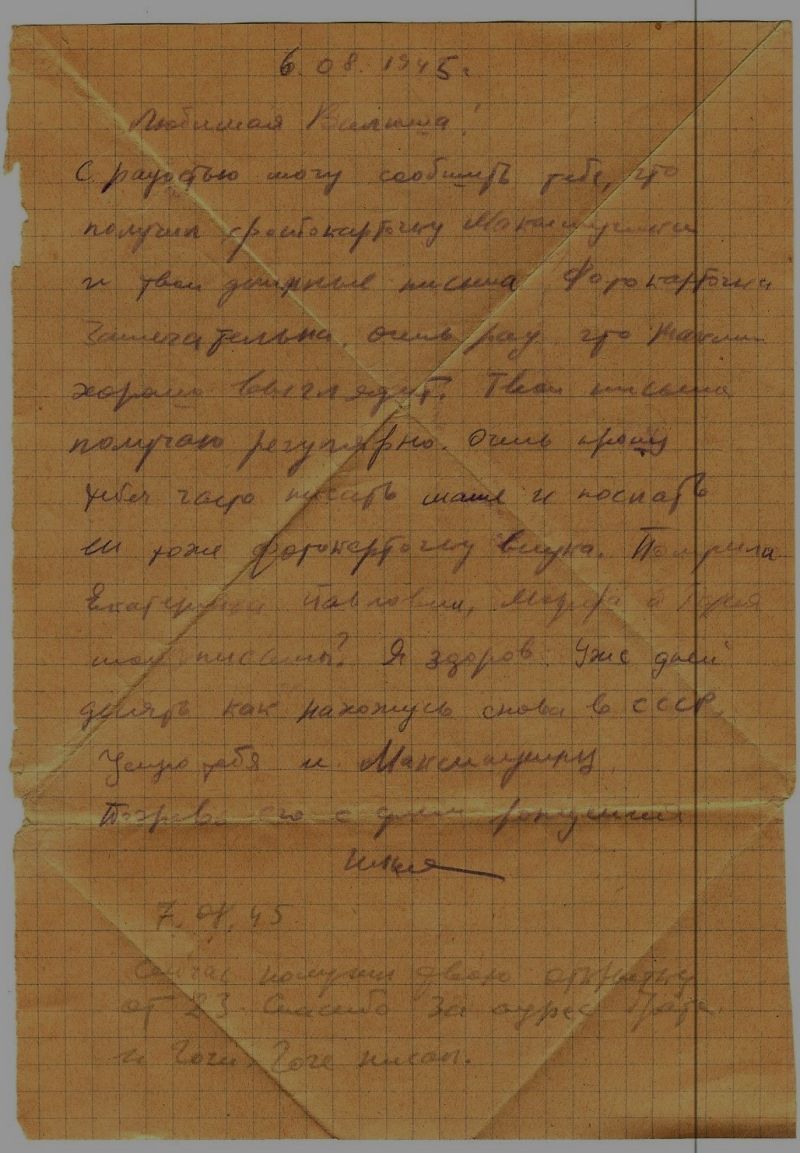 6.08.1945г.
Любимая Валюша!
С радостью могу сообщить тебе, что
получил фотокарточку Максимушки
и твои длинные письма. Фотокарточка
замечательна. Очень рад, что Максим
хорошо выглядит. Твои письма
получаю регулярно. Очень прошу
тебя часто писать маме и послать
ей тоже фотокарточку внука. Получила
Екатерина Павловна, и
мои письма? Я здоров. Уже дней
девять как нахожусь снова в СССР.
Целую тебя и Максимушку
Поздравь его с днем рождения
7.08.45
Сейчас получил твою открытку
от 23. Спасибо за адрес
и Гоги. Гоге писал.